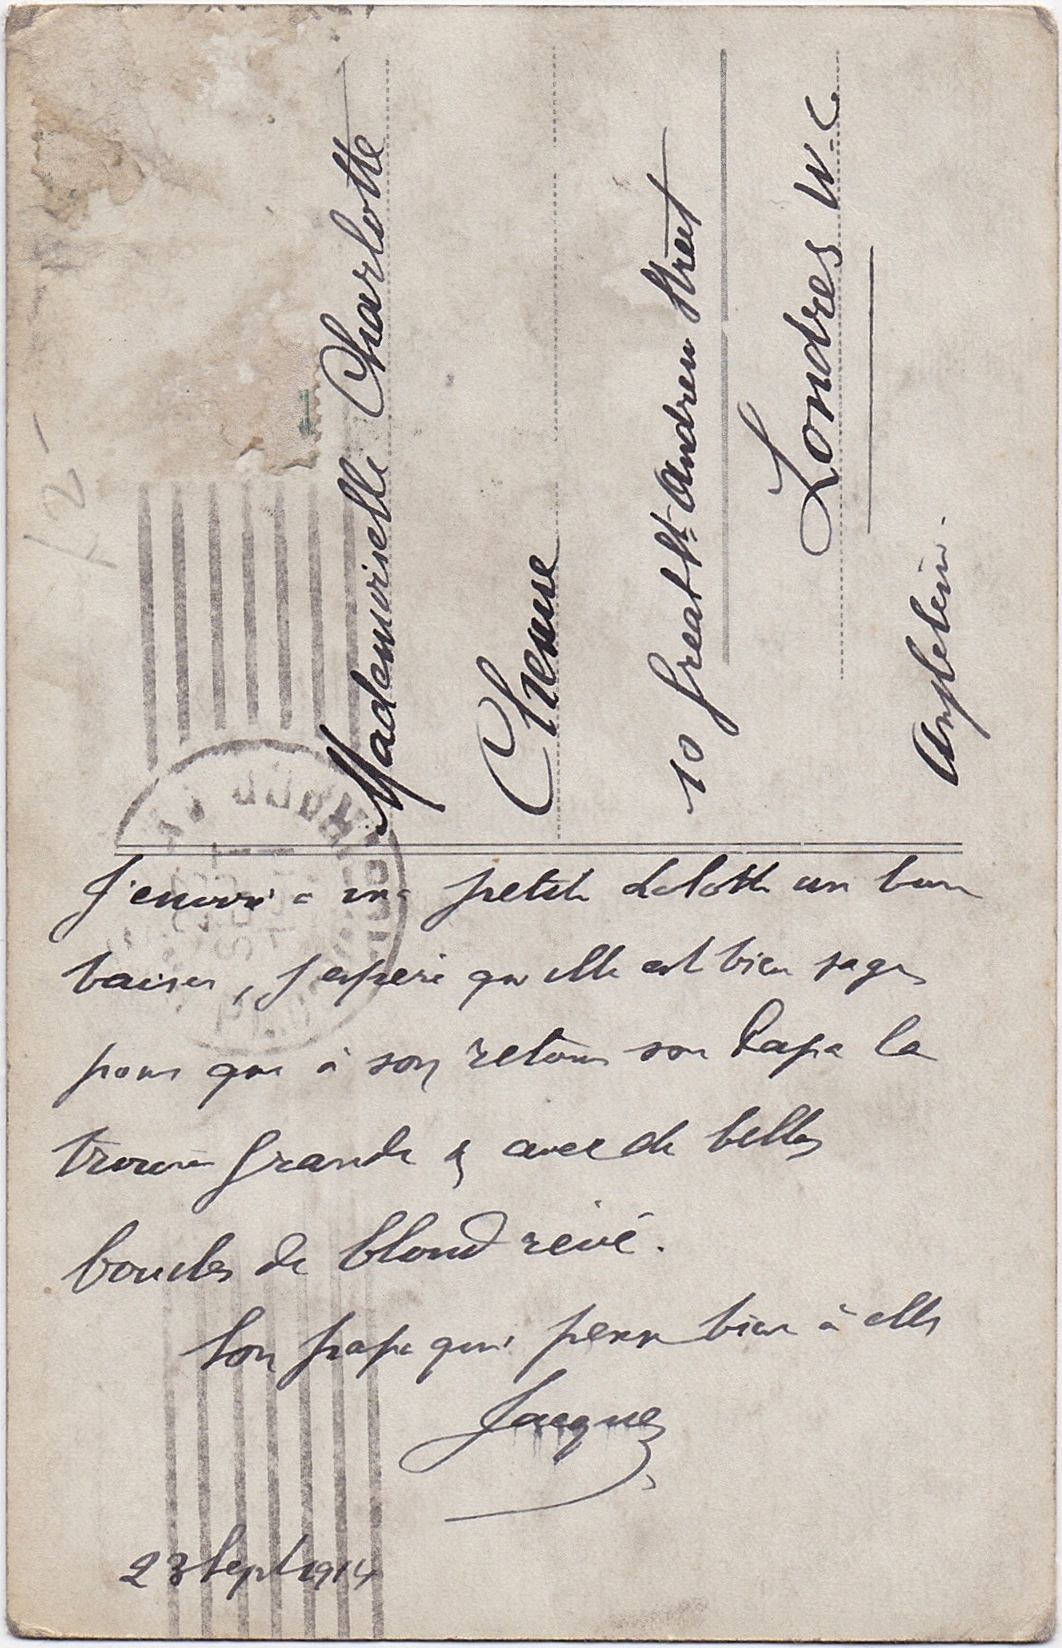 Mademoiselle Charlotte
10 Great St. Andrew Street
Londres W.C
J'envoie a ma petite Lolotte un bon
baiser, j'espere qu'elle est bien sage
pour que à son retour son Papa la
trouve grande & avec de belles
boucles de blond rêvé.
Son papa qui pense bien à elle
Jacques
23 Sept 1914
12-